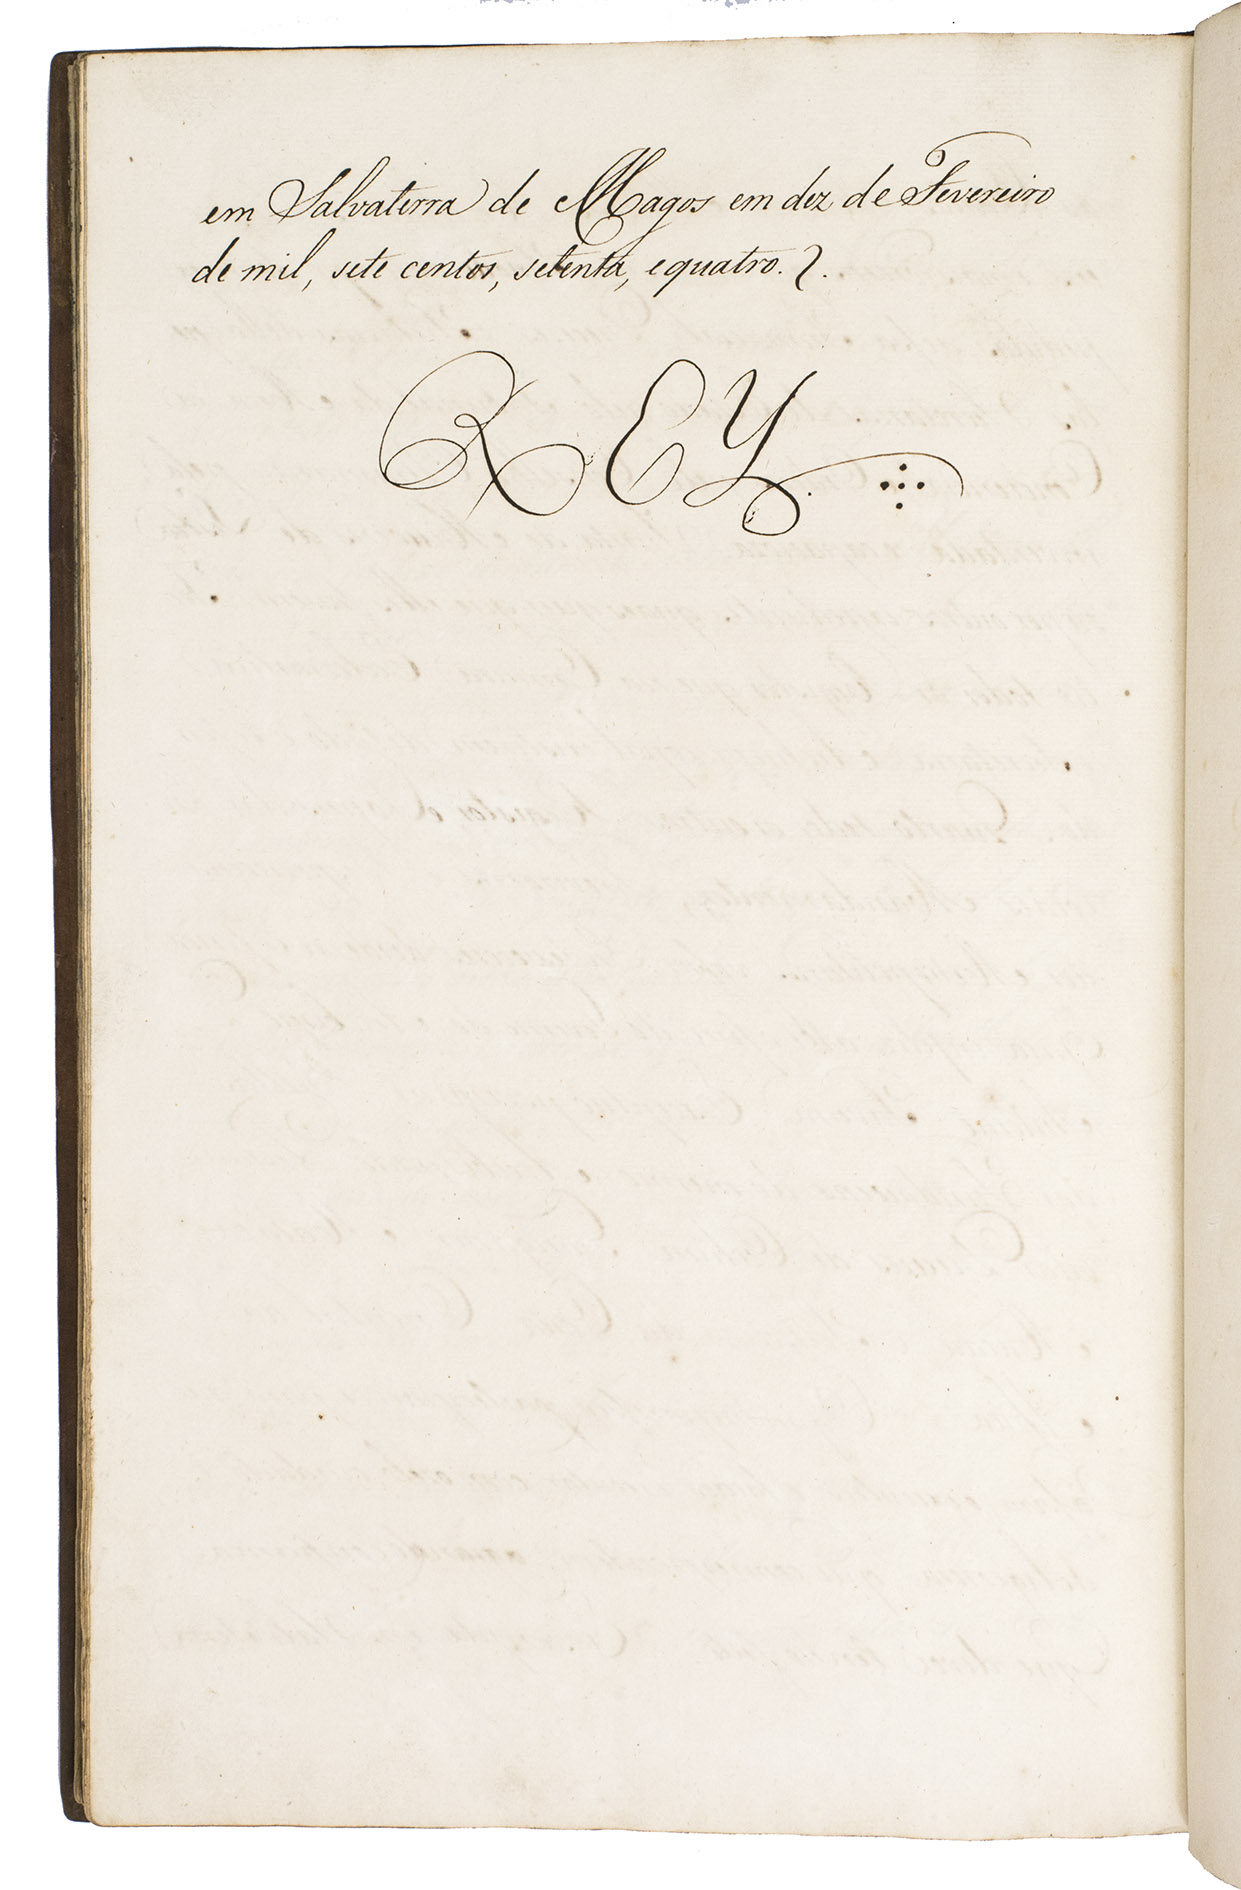 em Salvaterra de Magos em dez de Fevereiro
de mil, sete centos, setenta, e quatro.
REY